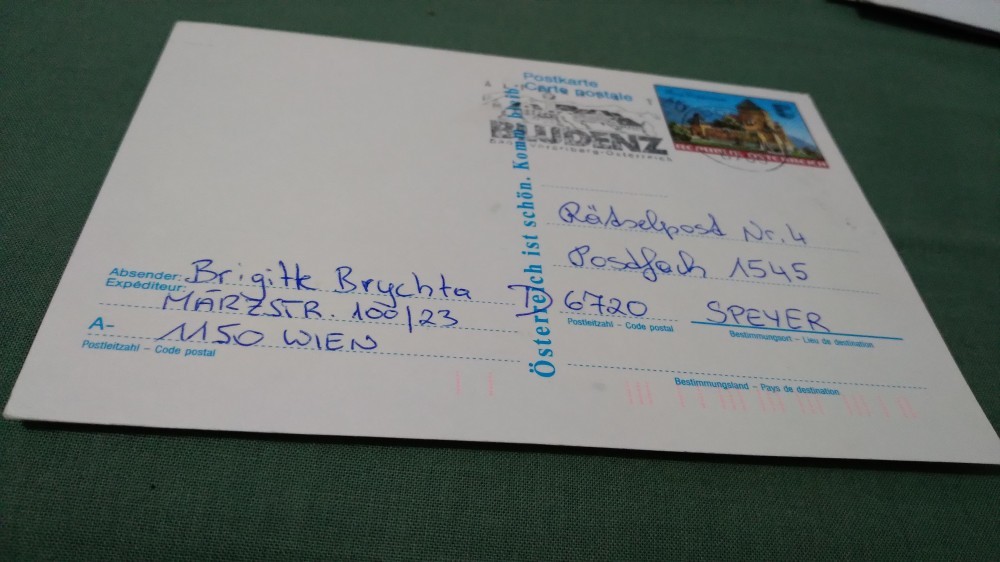 Postkarte
Carte postale
BLUDENZ
Österreich ist schön. Komm, bleib.
REPUBLIK ÖSTERREICH
Rätselpost Nr. 4
Postfach 1545
D 6720 SPEYER
Postleitzahl – Code postal
Bestimmungsort – Lieu de destination
Bestimmungsland – Pays de destination
Absender: Brigitte Brychta
Expéditeur:
MARZSTR. 100/23
A- 1150 WIEN
Postleitzahl – Code postal